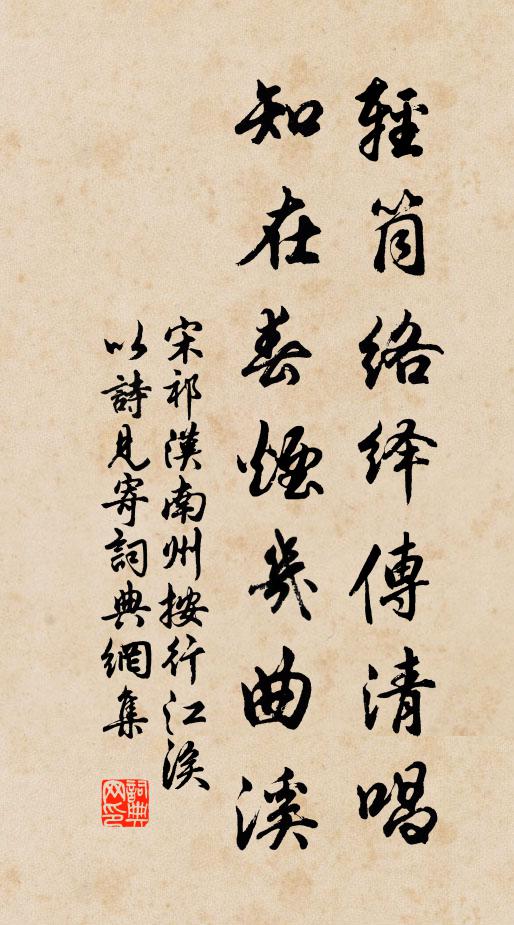 輕筒絡绎傳清唱
知在春煙幾曲溪
宋祁漢南州按行江涘
以詩見寄詞典網集
詞典
网印